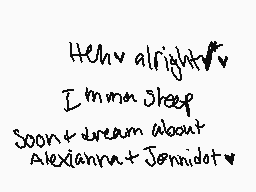 Heh♥ alright♥♥
Imma sleep
soon + dream about
Alexianna + Jennidot ♥